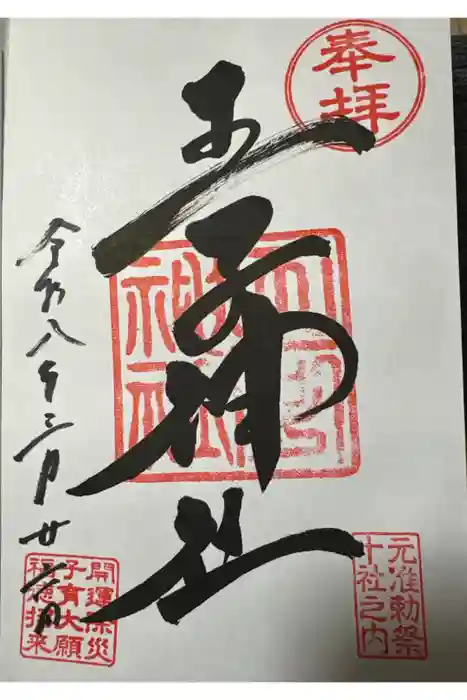 奉拝
王子神社
令和八年三月廿
元准勅祭
十社之内
開運除災
子育大願
福徳招来